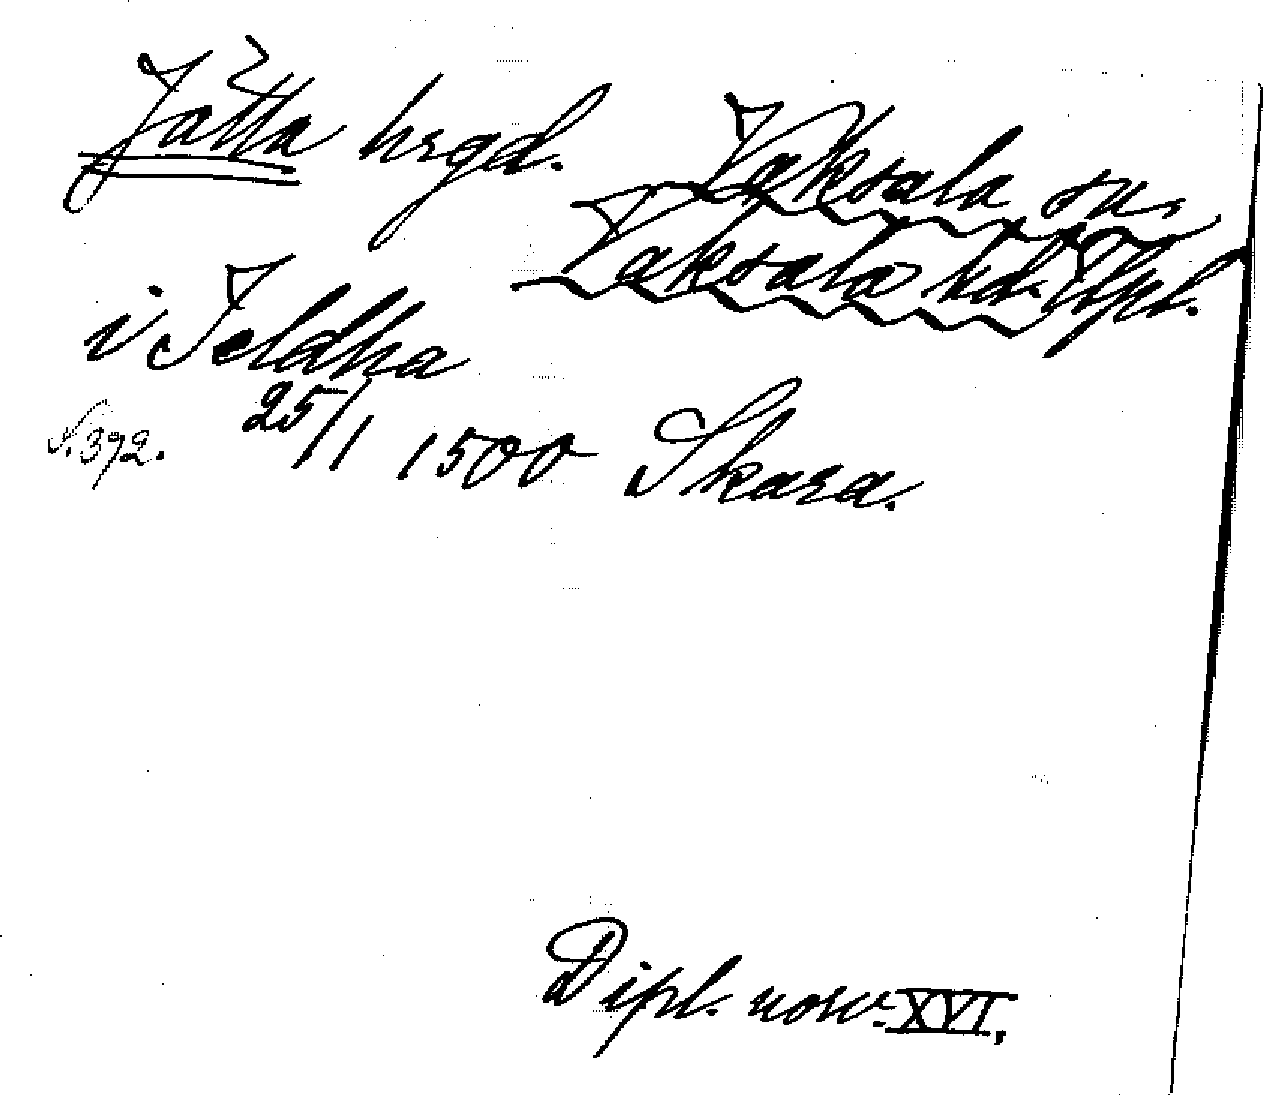 Jälla hrgd. Vaksala sn.
Vaksala hd. Uppl.
i Jeldha
N. 392. 25/1 1500 Skara.
Dipl. norv. XVI.